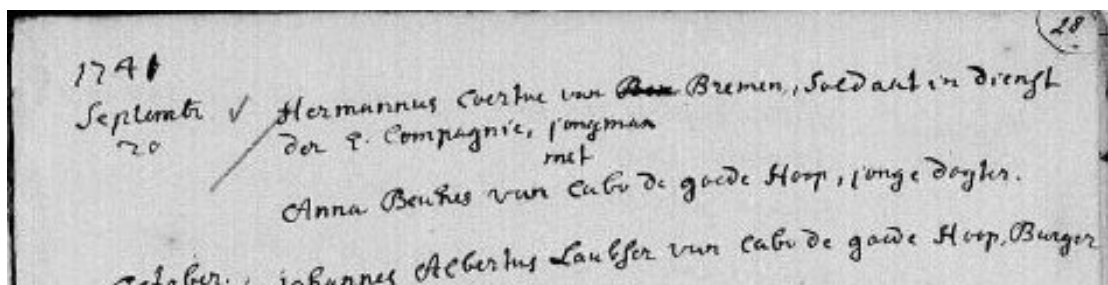 28
1741
Septemb. 20 Hermannus Coertse van Bremen, Soldaat in dienst
der E. Compagnie, jongman
met
Anna Beukes van Cabo de goede Hoop, jonge dogter.
October. Johannes Albertus Laubser van Cabo de goede Hoop, Burger